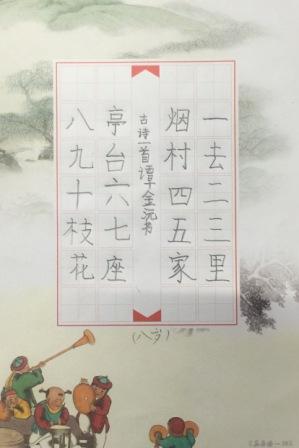 一去二三里
烟村四五家
古诗一首谭金沅书
亭台六七座
八九十枝花
(八岁)